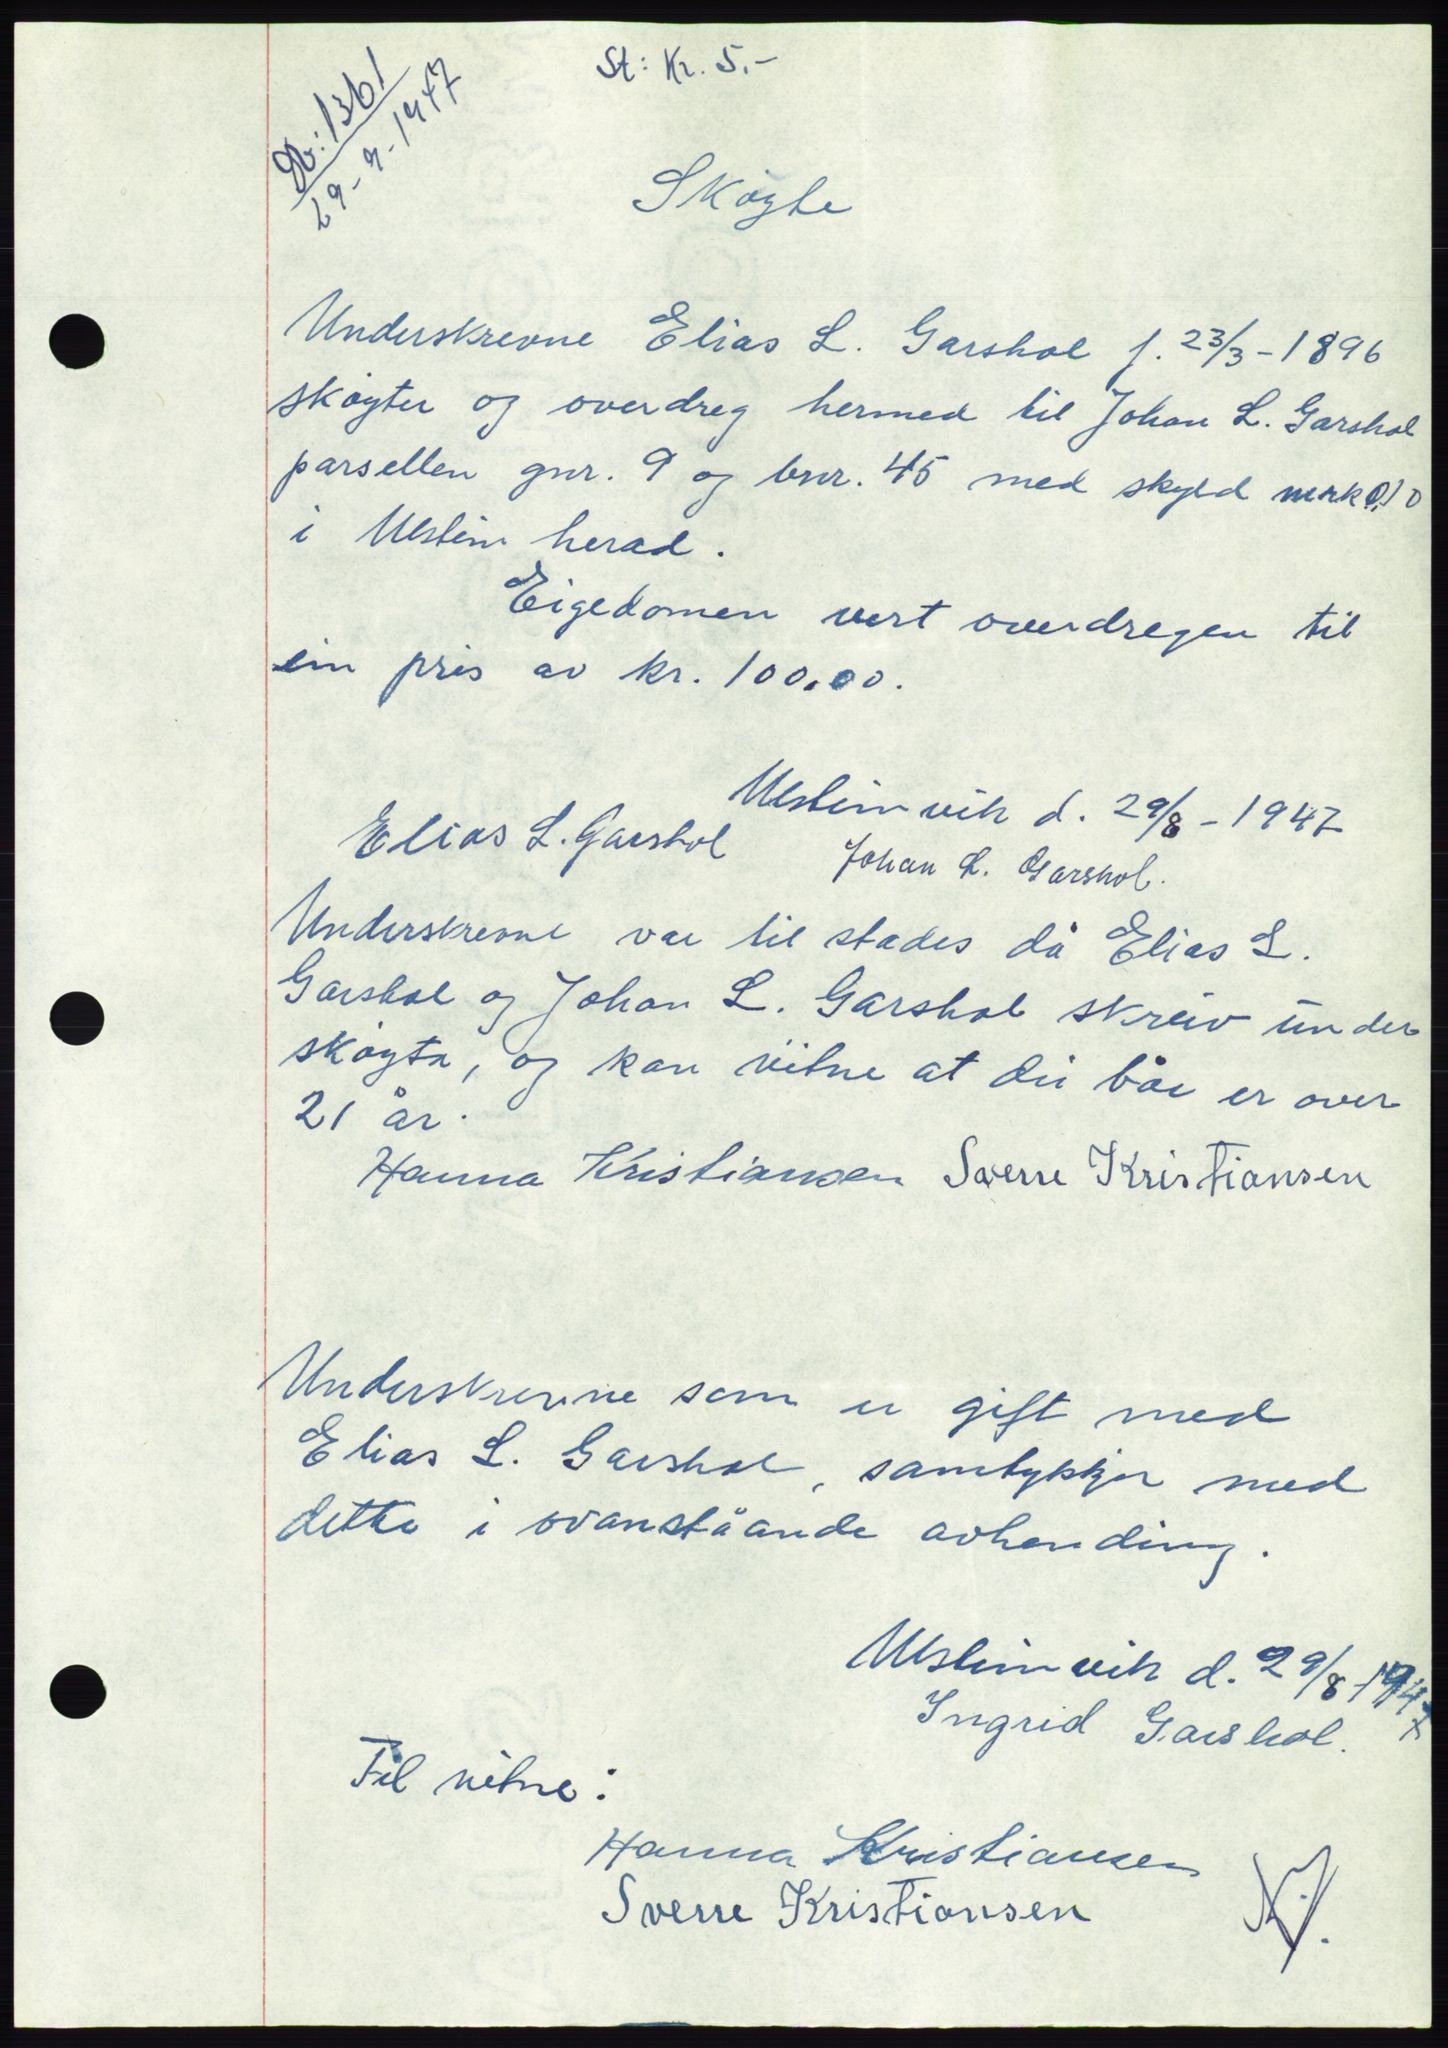 St: Kr. 5.-
Db: 1361
29-9-1947
Skøyte
Underskrevne Elias L. Garshol f. 23/3-1896
skøyter og overdreg hermed til Johan L. Garshol
parsellen gnr. 9 og bnr. 45 med skyld merk 0,10
i Ulstein herad.
Eigedomen vert overdregen til
ein pris av kr. 100.00.
Ulsteinvik d. 29/8-1947
Elias L. Garshol
Johan L. Garshol.
Underskrevne var til stades då Elias L.
Garshol og Johan L. Garshol skreiv under
skøyta, og kan vitne at dei båe er over
21 år.
Hanna Kristiansen Sverre Kristiansen
Underskrevne som er gift med
Elias L. Garshol, samtykkjer med
dette i ovanståande avhending.
Ulsteinvik d. 29/8-1947
Ingrid Garshol.
Til vitne:
Hanna Kristiansen
Sverre Kristiansen